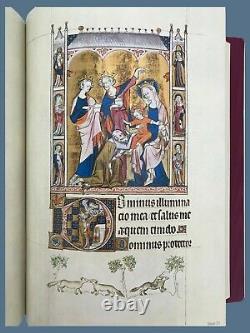 Dominus illumina
cio mea et salus me
a quem timebo
Dominus protector